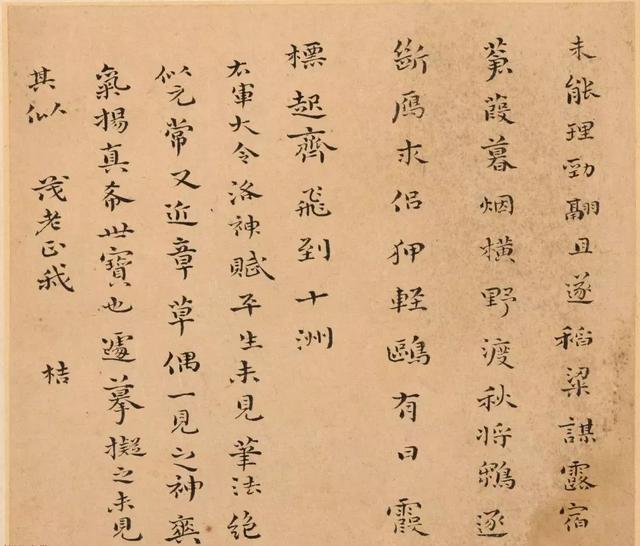 未能理勁翮且遂稻粱謀露宿
葭暮烟橫野渡秋將鶂逐
斷鴈求侶狎軽鷗有日霞
標起齊飛到十洲
右軍大令洛神賦平生未見筆法絕
似元常又近章草偶一見之神爽
氣揚真希世寶也遽摹擬之未見
其似 茂老正我 桔